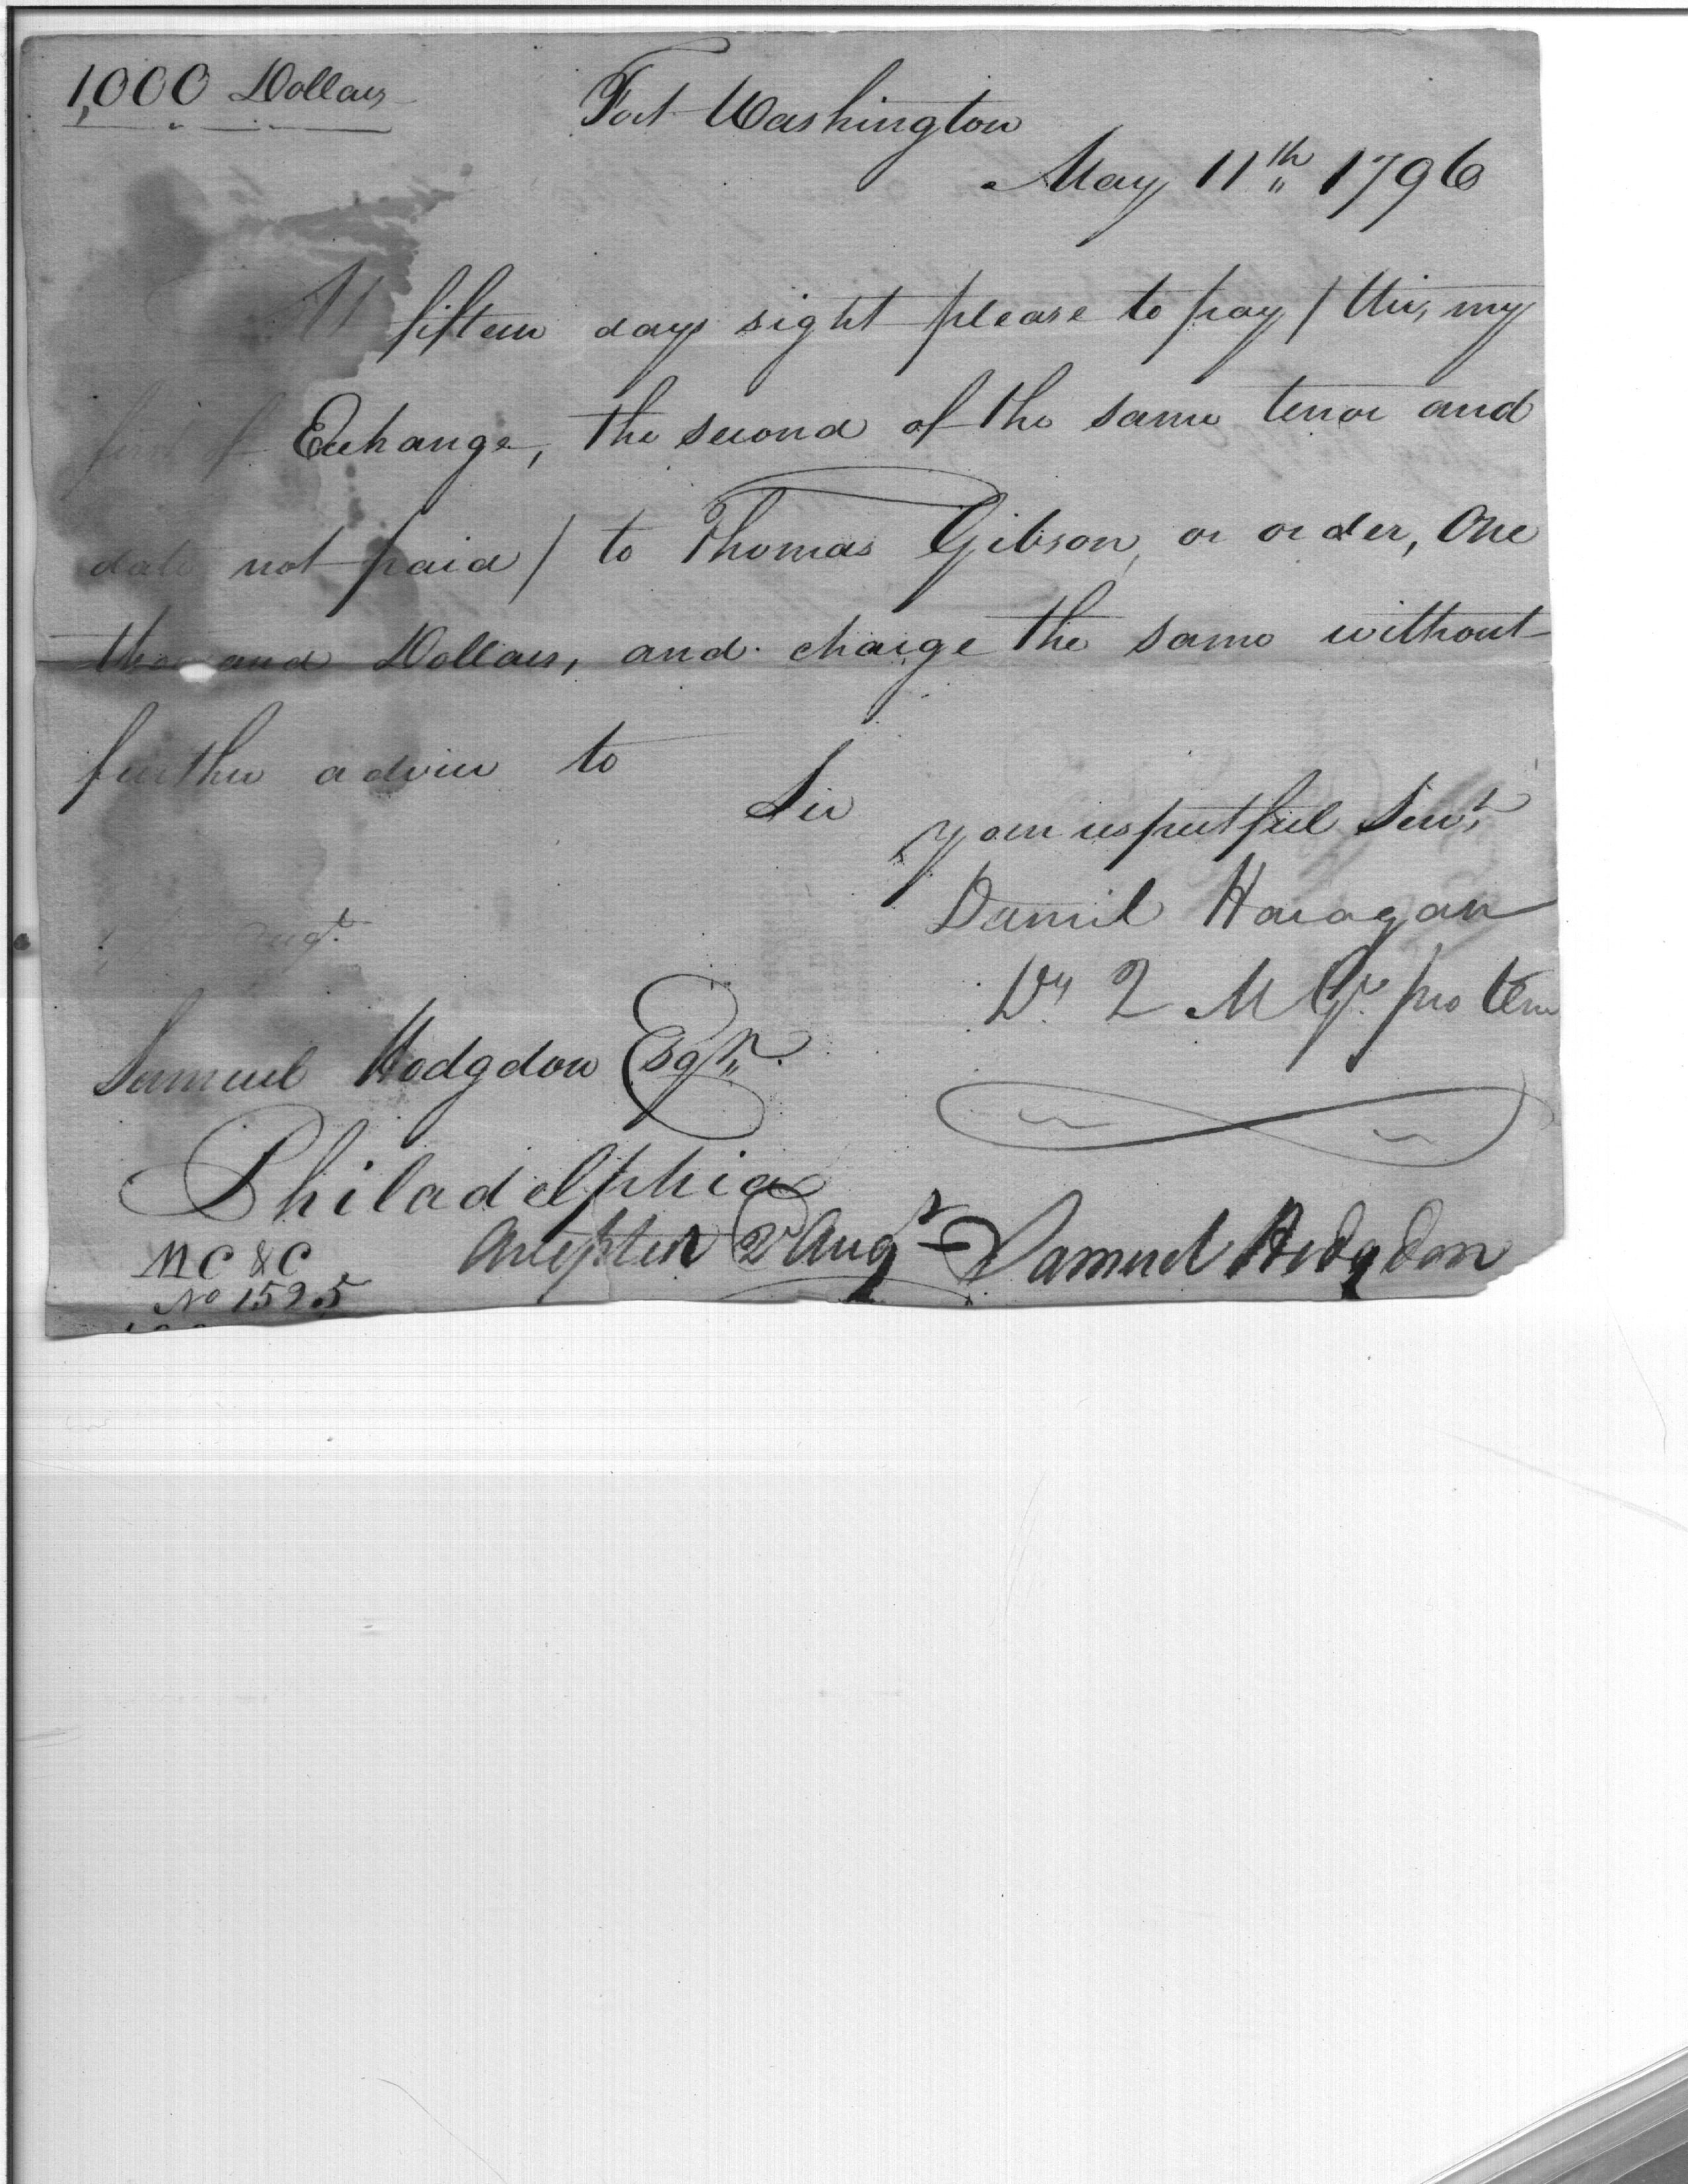 1,000 Dollars
Fort Washington
May 11th 1796
At fifteen days sight please to pay / this, my
first of Exchange, the second of the same tenor and
date not paid / to Thomas Gibson, or order, One
thousand Dollars, and charge the same without
further advice to
Sir
your respectful Servt,
Daniel Haragan
Dy Q M Gr. pro tem
Augt.
Samuel Hodgdon Esqr.
Philadelphia
Accepted 2d Augt Samuel Hodgdon
M C & C
No 1595